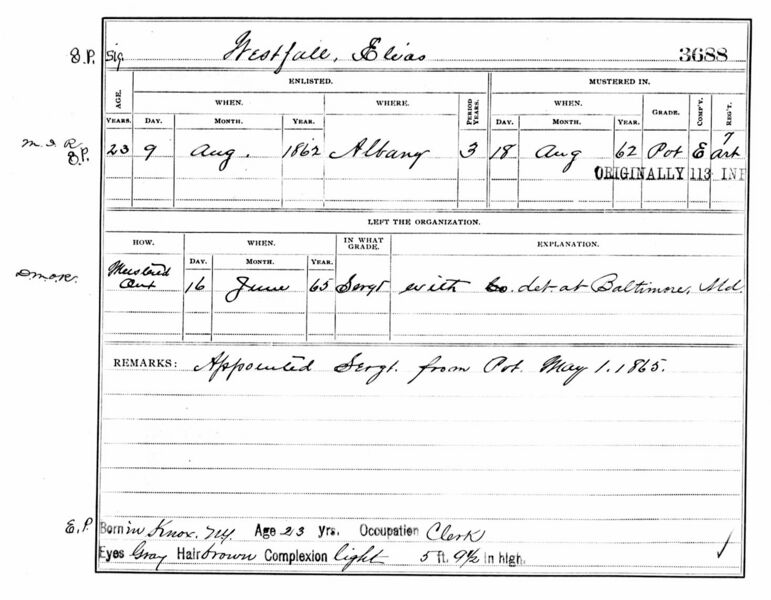 S.P. Sig Westfall, Elias 3688
ENLISTED. MUSTERED IN.
AGE. WHEN. WHERE. PERIOD YEARS. WHEN. GRADE. COMP'Y. REG'T.
YEARS. DAY. MONTH. YEAR. DAY. MONTH. YEAR.
M.I.R. 7
S.P. 23 9 Aug. 1862 Albany 3 18 Aug 62 Pvt E Art
ORIGINALLY 113 INF
LEFT THE ORGANIZATION.
HOW. WHEN. IN WHAT GRADE. EXPLANATION.
DAY. MONTH. YEAR.
Mustered
Out 16 June 65 Sergt with Co. det. at Baltimore, Md.
REMARKS: Appointed Sergt. from Pvt. May 1. 1865.
E.P. Born in Knox, NY. Age 23 yrs. Occupation Clerk
Eyes Gray Hair brown Complexion light 5 ft. 9½ in high.